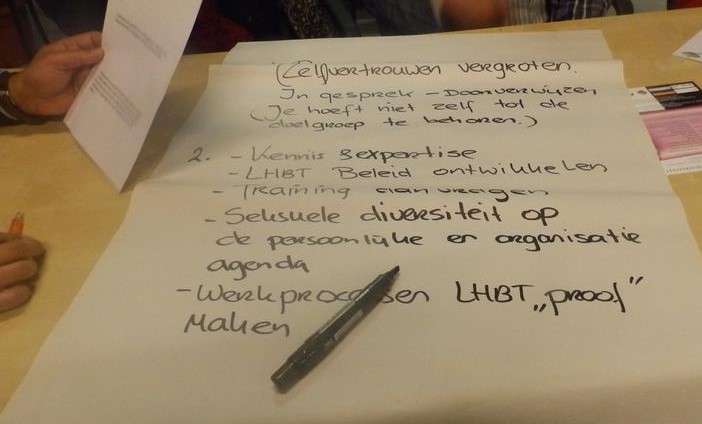 (Zelfvertrouwen vergroten.
In gesprek - Doorverwijzen
(Je hoeft niet zelf tot de
doelgroep te behoren.)
2. - Kennis & expertise
- LHBT Beleid ontwikkelen
- Training aanvragen
- Seksuele diversiteit op
de persoonlijke en organisatie
agenda
- Werkprocessen LHBT „proof"
Maken